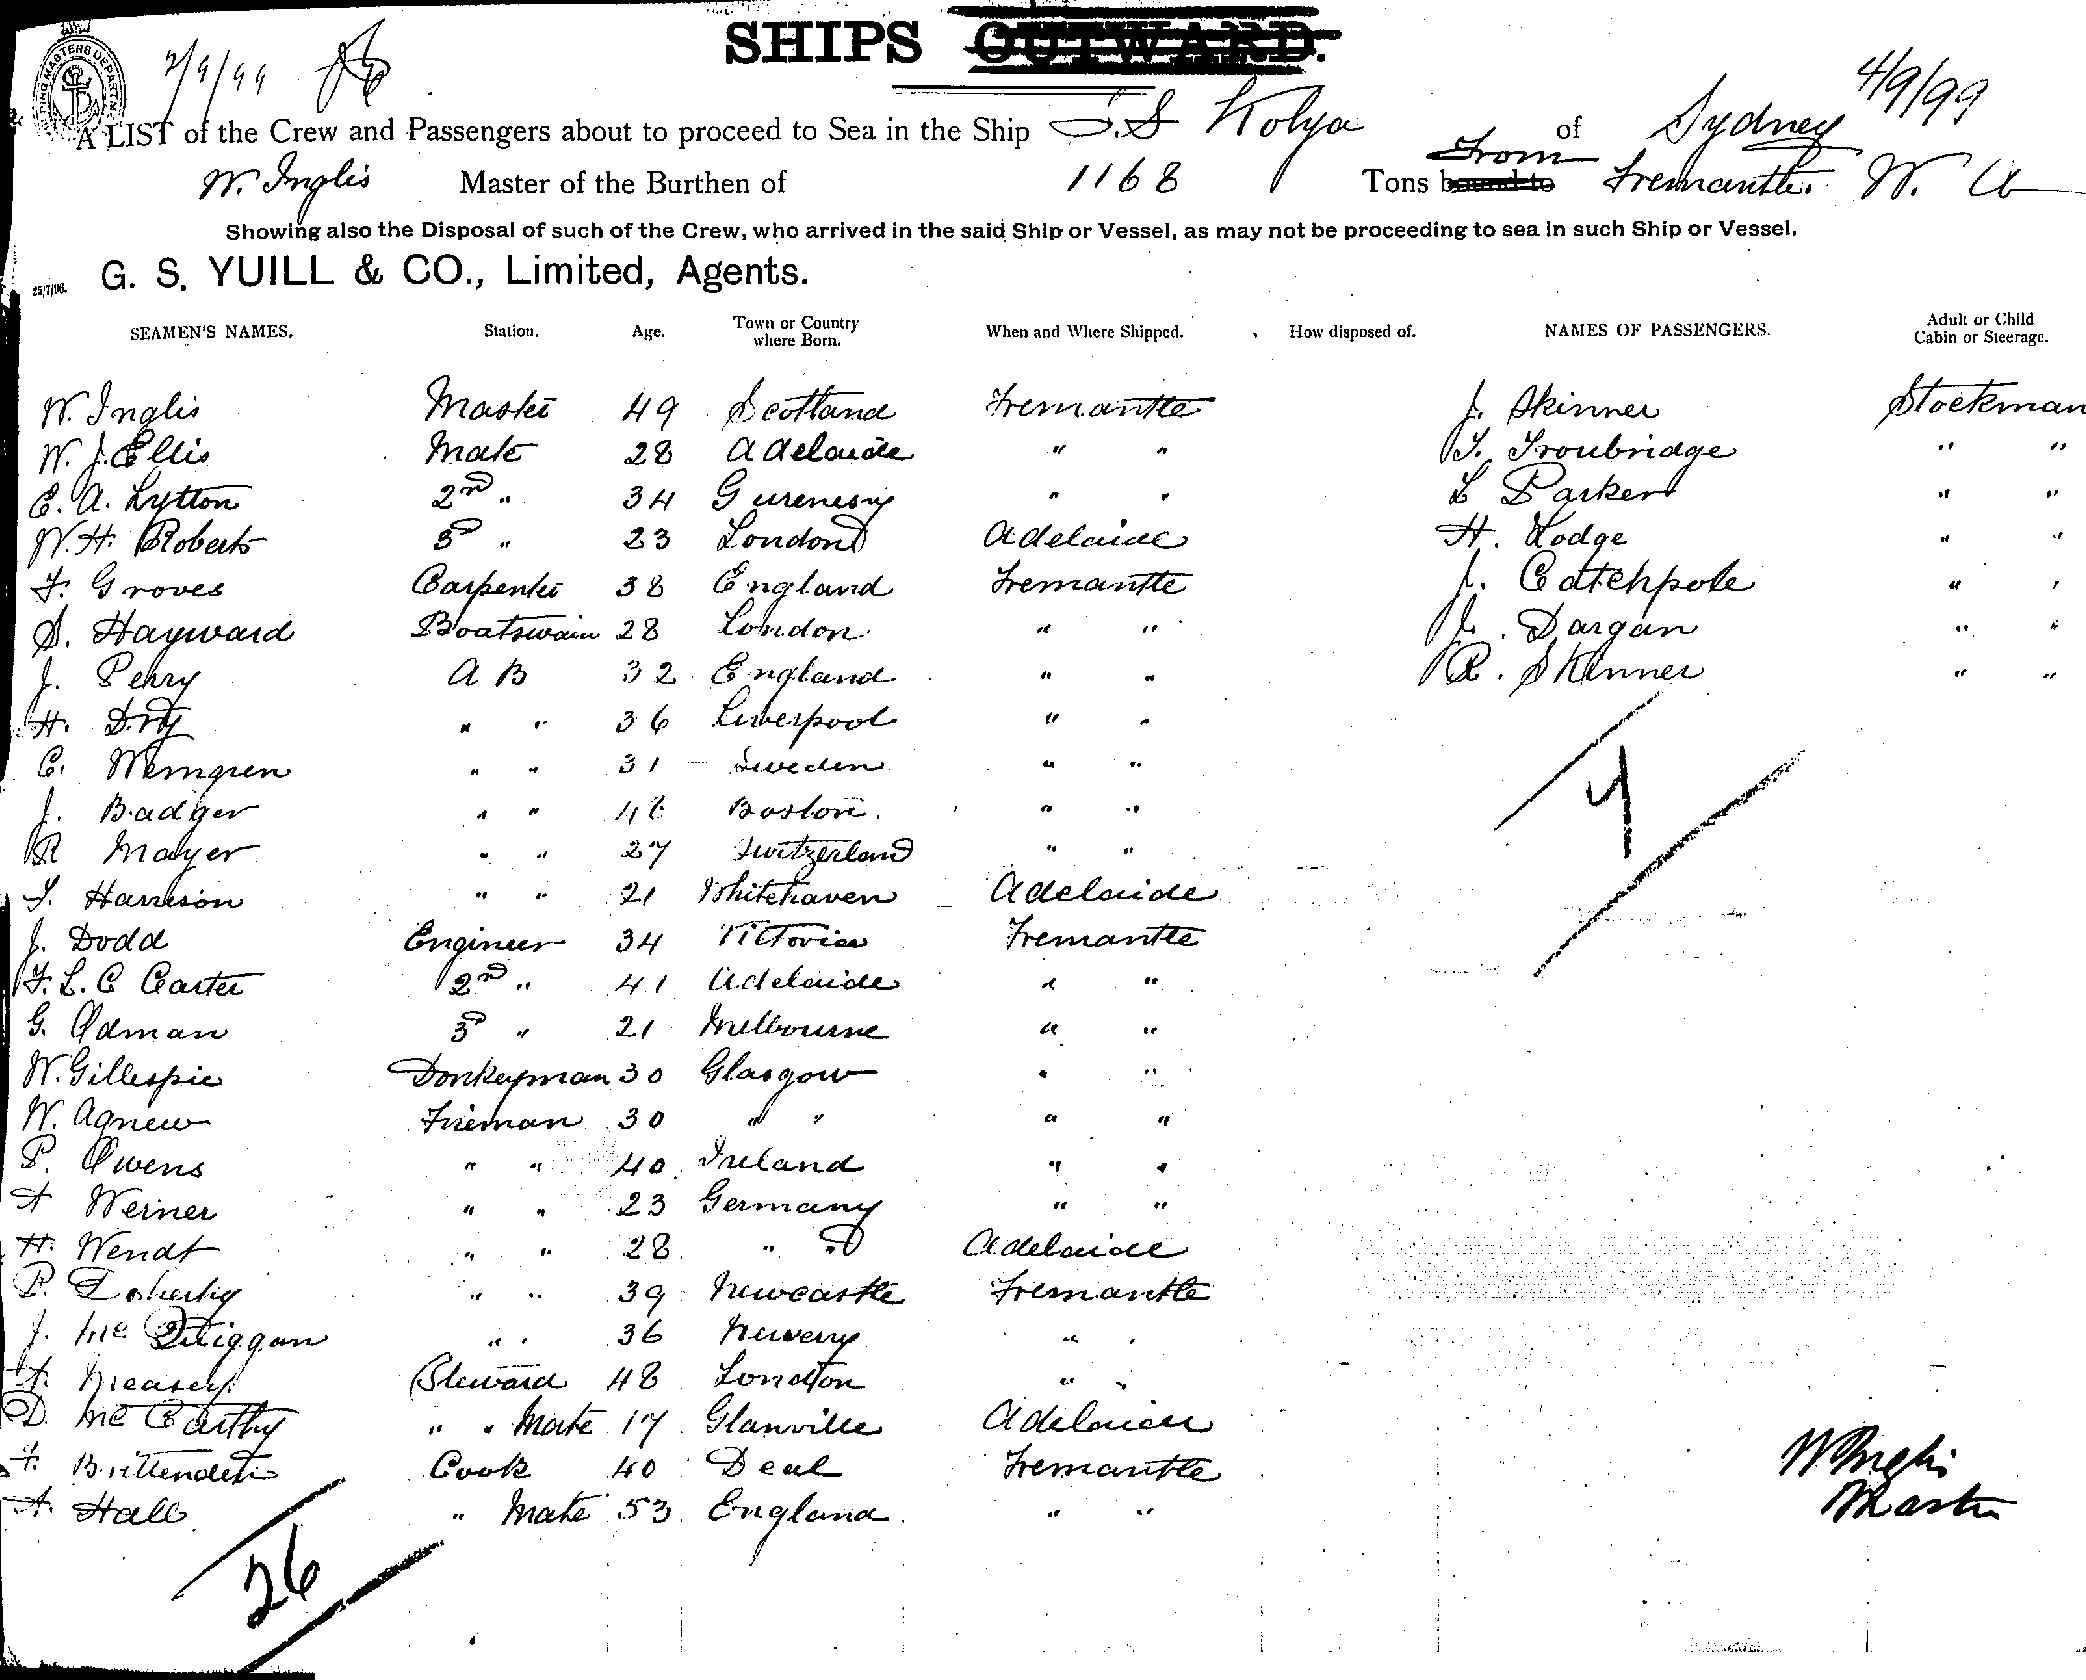 SHIPS OUTWARD.
2/9/99
4/9/99
A LIST of the Crew and Passengers about to proceed to Sea in the Ship S.S Kolya of Sydney
W. Inglis Master of the Burthen of 1168 Tons bound to From Fremantle. W. A
Showing also the Disposal of such of the Crew, who arrived in the said Ship or Vessel, as may not be proceeding to sea in such Ship or Vessel.
25/7/98. G. S. YUILL & CO., Limited, Agents.
SEAMEN'S NAMES. Station. Age. Town or Country where Born. When and Where Shipped. How disposed of. NAMES OF PASSENGERS. Adult or Child Cabin or Steerage.
W. Inglis Master 49 Scotland Fremantle J. Skinner Stockman
W. J. Ellis Mate 28 Adelaide " " T. Troubridge " "
E. A. Lytton 2nd " 34 Guernesny " " L Parker " "
W. H. Roberts 3D " 23 London Adelaide H. Hodge " "
F. Groves Carpenter 38 England Fremantle J. Catchpole " "
S. Hayward Boatswain 28 London " " J. Dargan " "
J. Perry A B 32 England " " R. Skinner " "
H. Dry " " 36 Liverpool " "
C. Werngren " " 31 Sweden " "
J. Badger " " 48 Boston. " "
R Mayer " " 27 Switzerland " "
T. Harrison " " 21 Whitehaven Adelaide
J. Dodd Engineer 34 Victoria Fremantle
F. L. C Carter 2nd " 41 Adelaide " "
G. Odman 3D " 21 Melbourne " "
W. Gillespie Donkeyman 30 Glasgow " "
W. Agnew Fireman 30 " " " "
P. Owens " " 40 Ireland " "
A Werner " " 23 Germany " "
H. Wendt " " 28 " " Adelaide
P. Doherty " " 39 Newcastle Fremantle
J. Mc Quiggan " " 36 Newery " "
A. Neasey Steward 48 London " "
D. Mc Carthy " " Mate 17 Glanville Adelaide
F. Brittenden Cook 40 Deal Fremantle
A. Hall " Mate 53 England " "
7
26
W Inglis
Master